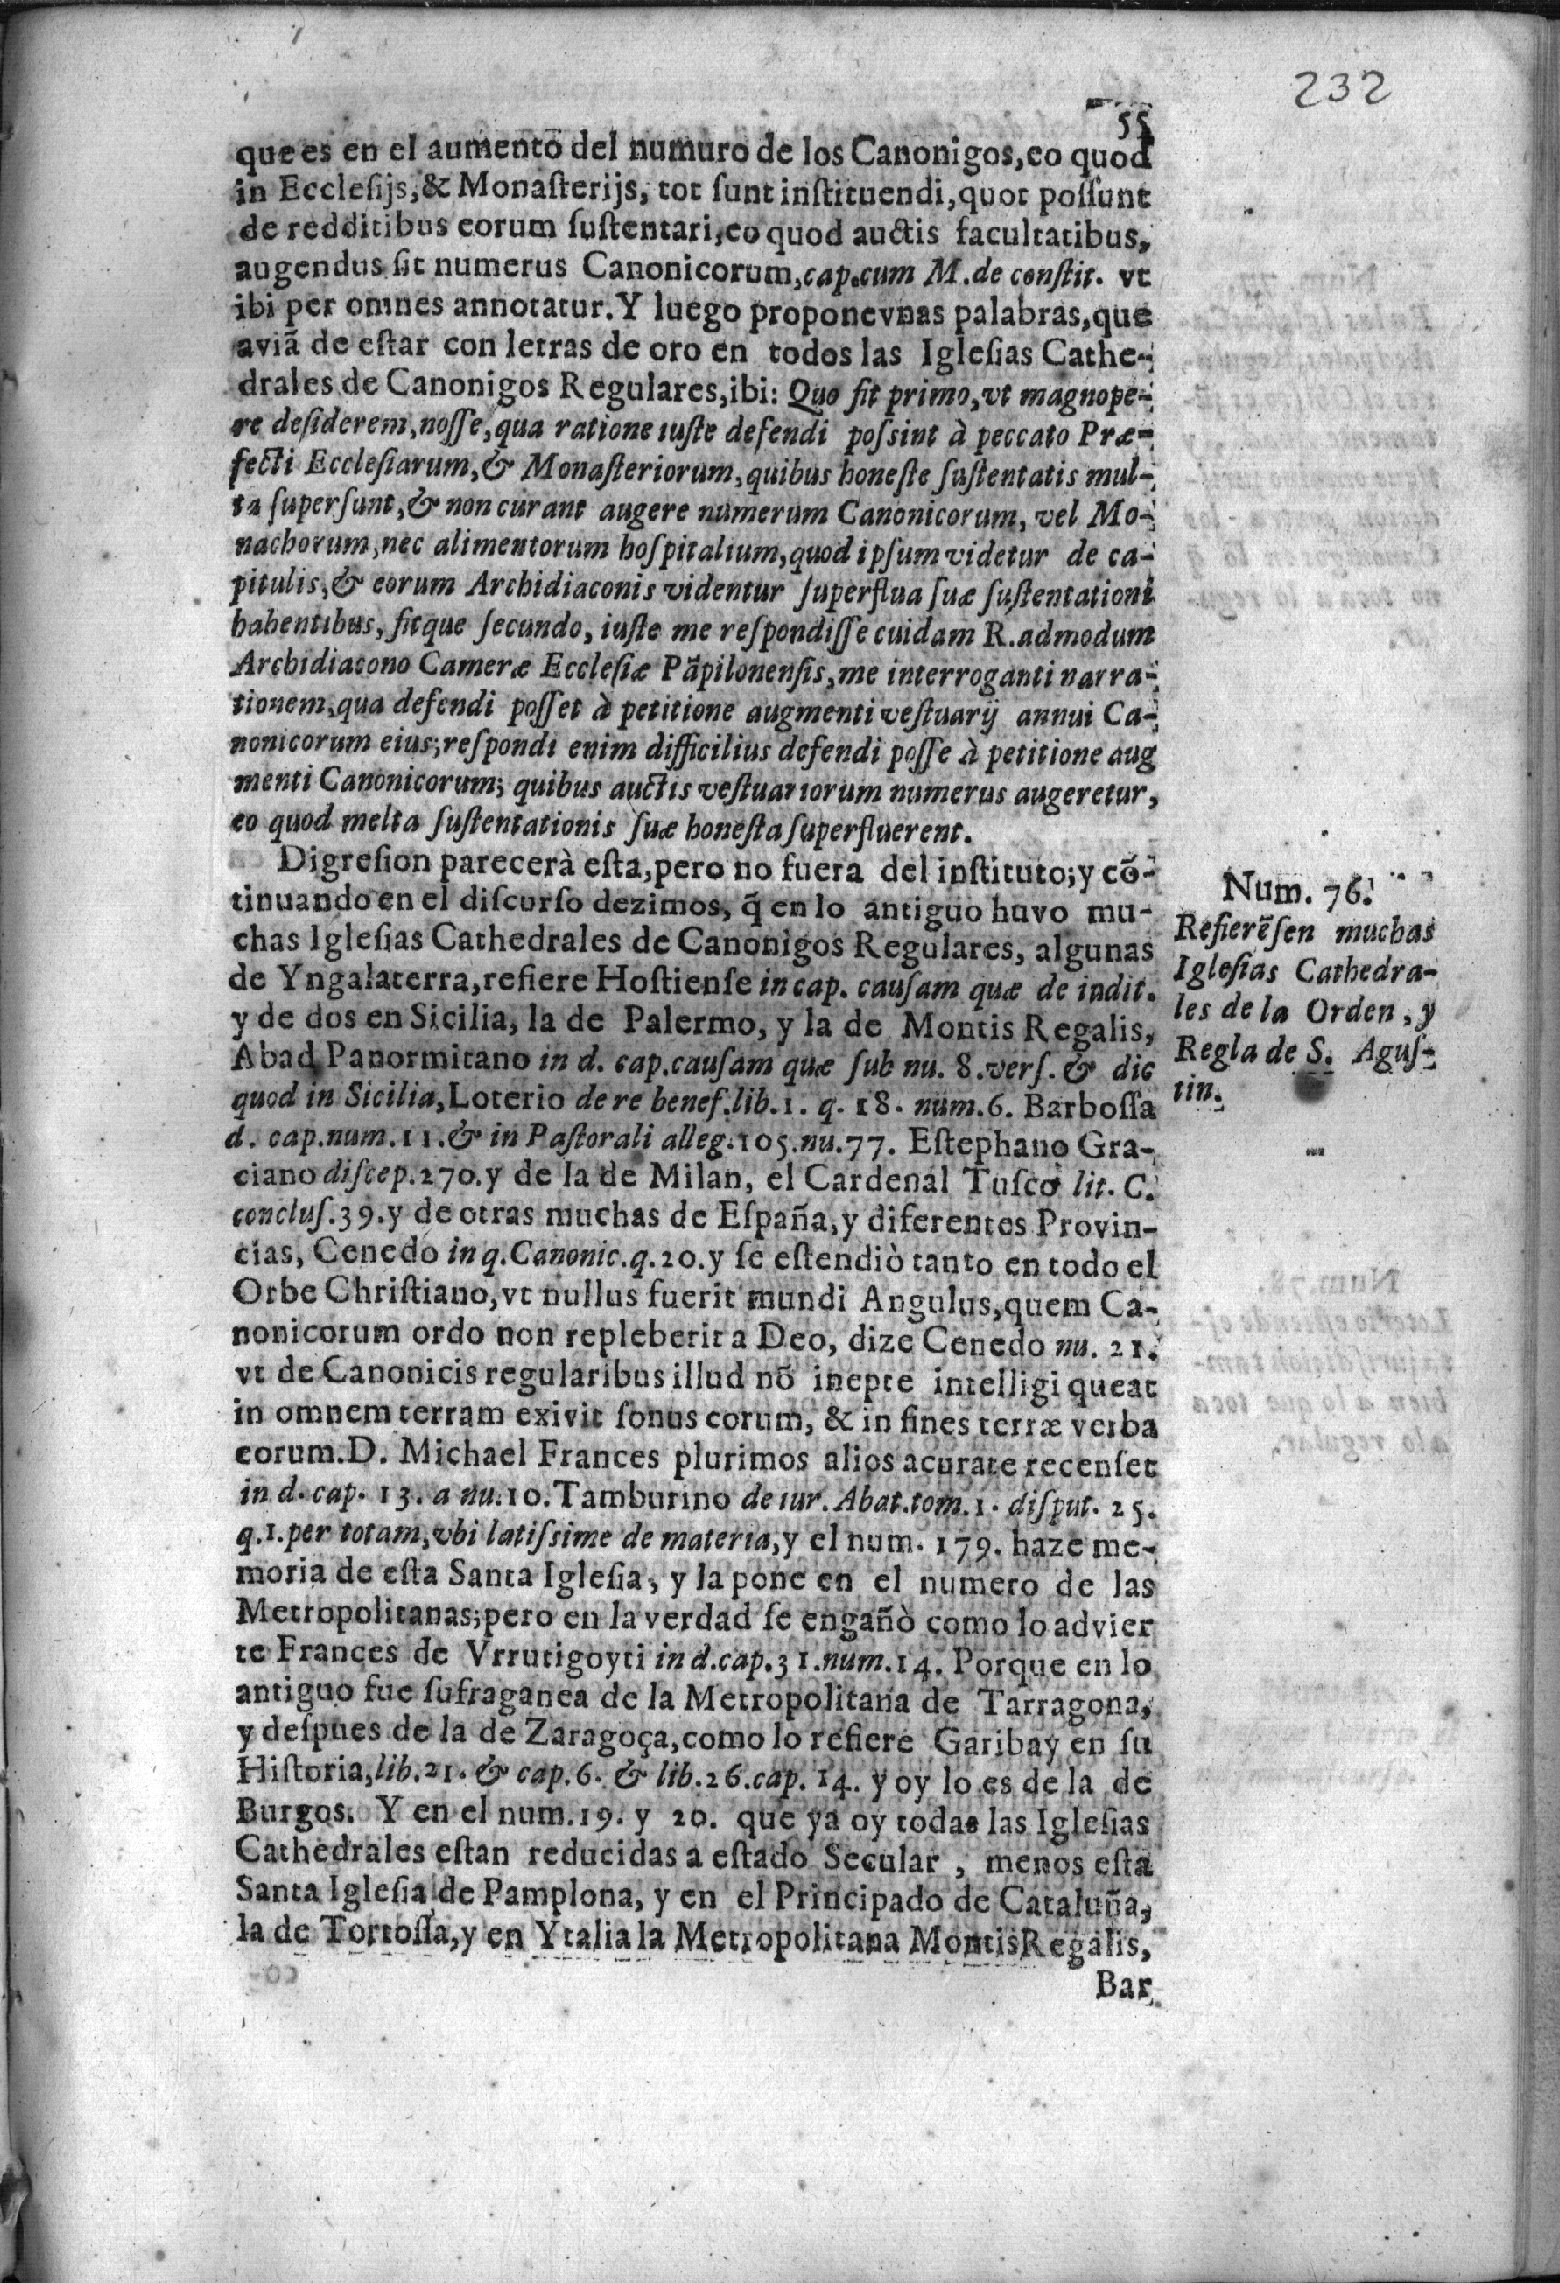 232
55
que es en el aumentō del numuro de los Canonigos, eo quod
in Ecclesijs, & Monasterijs, tot sunt instituendi, quot possunt
de redditibus eorum sustentari, eo quod auctis facultatibus,
augendus sit numerus Canonicorum, cap. cum M. de constit. vt
ibi per omnes annotatur. Y luego propone vnas palabras, que
aviã de estar con letras de oro en todos las Iglesias Cathe-
drales de Canonigos Regulares, ibi: Quo fit primo, vt magnope-
re desiderem, nosse, qua ratione iuste defendi possint à peccato Præ-
fecti Ecclesiarum, & Monasteriorum, quibus honeste sustentatis mul-
ta supersunt, & non curant augere numerum Canonicorum, vel Mo-
nachorum, nec alimentorum hospitalium, quod ipsum videtur de ca-
pitulis, & eorum Archidiaconis videntur superflua suæ sustentationi
habentibus, fitque secundo, iuste me respondisse cuidam R. admodum
Archidiacono Cameræ Ecclesiæ Pãpilonensis, me interroganti narra-
tionem, qua defendi posset à petitione augmenti vestuarij annui Ca-
nonicorum eius; respondi enim difficilius defendi posse à petitione aug
menti Canonicorum; quibus auctis vestuariorum numerus augeretur,
eo quod melta sustentationis suæ honesta superfluerent.
Digresion parecerà esta, pero no fuera del instituto; y cõ-
tinuando en el discurso dezimos, q̃ en lo antiguo huvo mu-
chas Iglesias Cathedrales de Canonigos Regulares, algunas
de Yngalaterra, refiere Hostiense in cap. causam quæ de indit.
y de dos en Sicilia, la de Palermo, y la de Montis Regalis,
Abad Panormitano in d. cap. causam quæ sub nu. 8. vers. & dic
quod in Sicilia, Loterio de re benef. lib. 1. q. 18. num. 6. Barbossa
d. cap. num. 11. & in Pastorali alleg. 105. nu. 77. Estephano Gra-
ciano discep. 270. y de la de Milan, el Cardenal Tusco lit. C.
conclus. 39. y de otras muchas de España, y diferentes Provin-
cias, Cenedo in q. Canonic. q. 20. y se estendiò tanto en todo el
Orbe Christiano, vt nullus fuerit mundi Angulus, quem Ca-
nonicorum ordo non repleberit a Deo, dize Cenedo nu. 21.
vt de Canonicis regularibus illud nō inepte intelligi queat
in omnem terram exivit sonus corum, & in fines terræ verba
eorum. D. Michael Frances plurimos alios acurate recenset
in d. cap. 13. a nu. 10. Tamburino de iur. Abat. tom. 1. disput. 25.
q. 1. per totam, vbi latissime de materia, y el num. 179. haze me-
moria de esta Santa Iglesia, y la pone en el numero de las
Metropolitanas; pero en la verdad se engañò como lo advier
te Frances de Vrrutigoyti in d. cap. 31. num. 14. Porque en lo
antiguo fue sufraganea de la Metropolitana de Tarragona,
y despues de la de Zaragoça, como lo refiere Garibay en su
Historia, lib. 21. & cap. 6. & lib. 26. cap. 14. y oy lo es de la de
Burgos. Y en el num. 19. y 20. que ya oy todas las Iglesias
Cathedrales estan reducidas a estado Secular, menos esta
Santa Iglesia de Pamplona, y en el Principado de Cataluña,
la de Tortossa, y en Ytalia la Metropolitana Montis Regalis,
Bar
Num. 76.
Refierēsen muchas
Iglesias Cathedra-
les de la Orden, y
Regla de S. Agus-
tin.